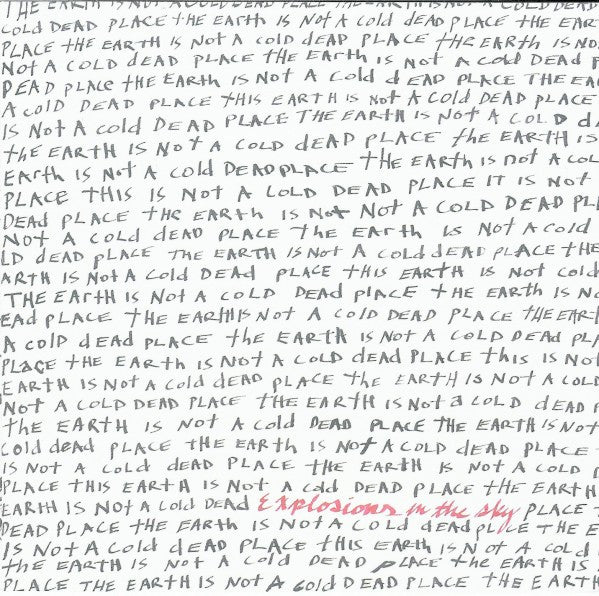 THE EARTH IS NOT A COLD DEAD PLACE THE EARTH IS NOT A COLD DEAD
COLD DEAD PLACE THE EARTH IS NOT A COLD DEAD PLACE THE EAR
PLACE tHE EARTH IS NOT A COLD dEAD PLACE THE EARTH IS NO
NOT A COLD dEAD PLACE THE EARTH IS NOT A COLD DEAD P
DEAD PLACE tHE EARTH IS NOT A Cold dEAD PLACE THE EA
A COLD DEAD PLACE tHIS EARTH IS NOT A COLD DEAD PLACE
IS NOT A Cold DEAD PLACE THE EARTH IS NOT A COLD d
tHE EARTH IS NOT A COLD dEAD PLACE the EARTH IS
EARTH IS NOT A COLD DEAD PLACE tHE EARTH IS not A COL
PLACE THIS IS NOT A COLD DEAD PLACE IT IS NOT
DEAD PLACE tHE EARTH IS NOT NOT A COLD DEAD PL
NOT A COLD DEAD PLACE the EARTH IS NOT A COLD
LD dEAD PLACE THE EARTH IS NOT A COLD dEAD PLACE tHE
ARTH IS NOT A Cold DEAD PLACE tHIS EARTH IS NOT COLD
THE EARTH IS NOT A COLD DEAD place tHE EARTH IS N
EAD PLACE tHE EARTH IS NOT A COLD DEAD PLACE THE EART
A COLD dEAD PLACE tHE EARTH IS NOT A COLD DEAD PLA
PLACE tHE EARTH IS NOT A COLD dEAD PLACE this IS NOT
EARTH IS NOT A cold dEAD PLACE the EARTH IS NOT A COLD
NOT A COLD DEAD PLACE tHE EARTH IS NOT a COLD dEAD
tHE EARTH IS NOT A COLD DEAD PLACE THE EARTH IS NOT
Cold dead PLACE tHE EARTH IS NOT A COLD dEAD PLACE
IS NOT A COLD dEAD PLACE tHE EARTH IS NOT A COLD
PLACE THIS EARTH IS NOT A COLD DEAD PLACE tHE EARTH
EARTH IS NOT A COLD DEAD Explosions in the sky PLACE
DEAD PLACE tHE EARTH IS NOT A COLD dEAd place THE E
IS NOT A Cold DEAD PLACE THIS EARTH IS NOT A COLD
tHE EARTH IS NOT A cold DEAD place tHE EARTH IS
PLACE THE EARTH IS NOT A cold DEAD PLACE THE EARTH